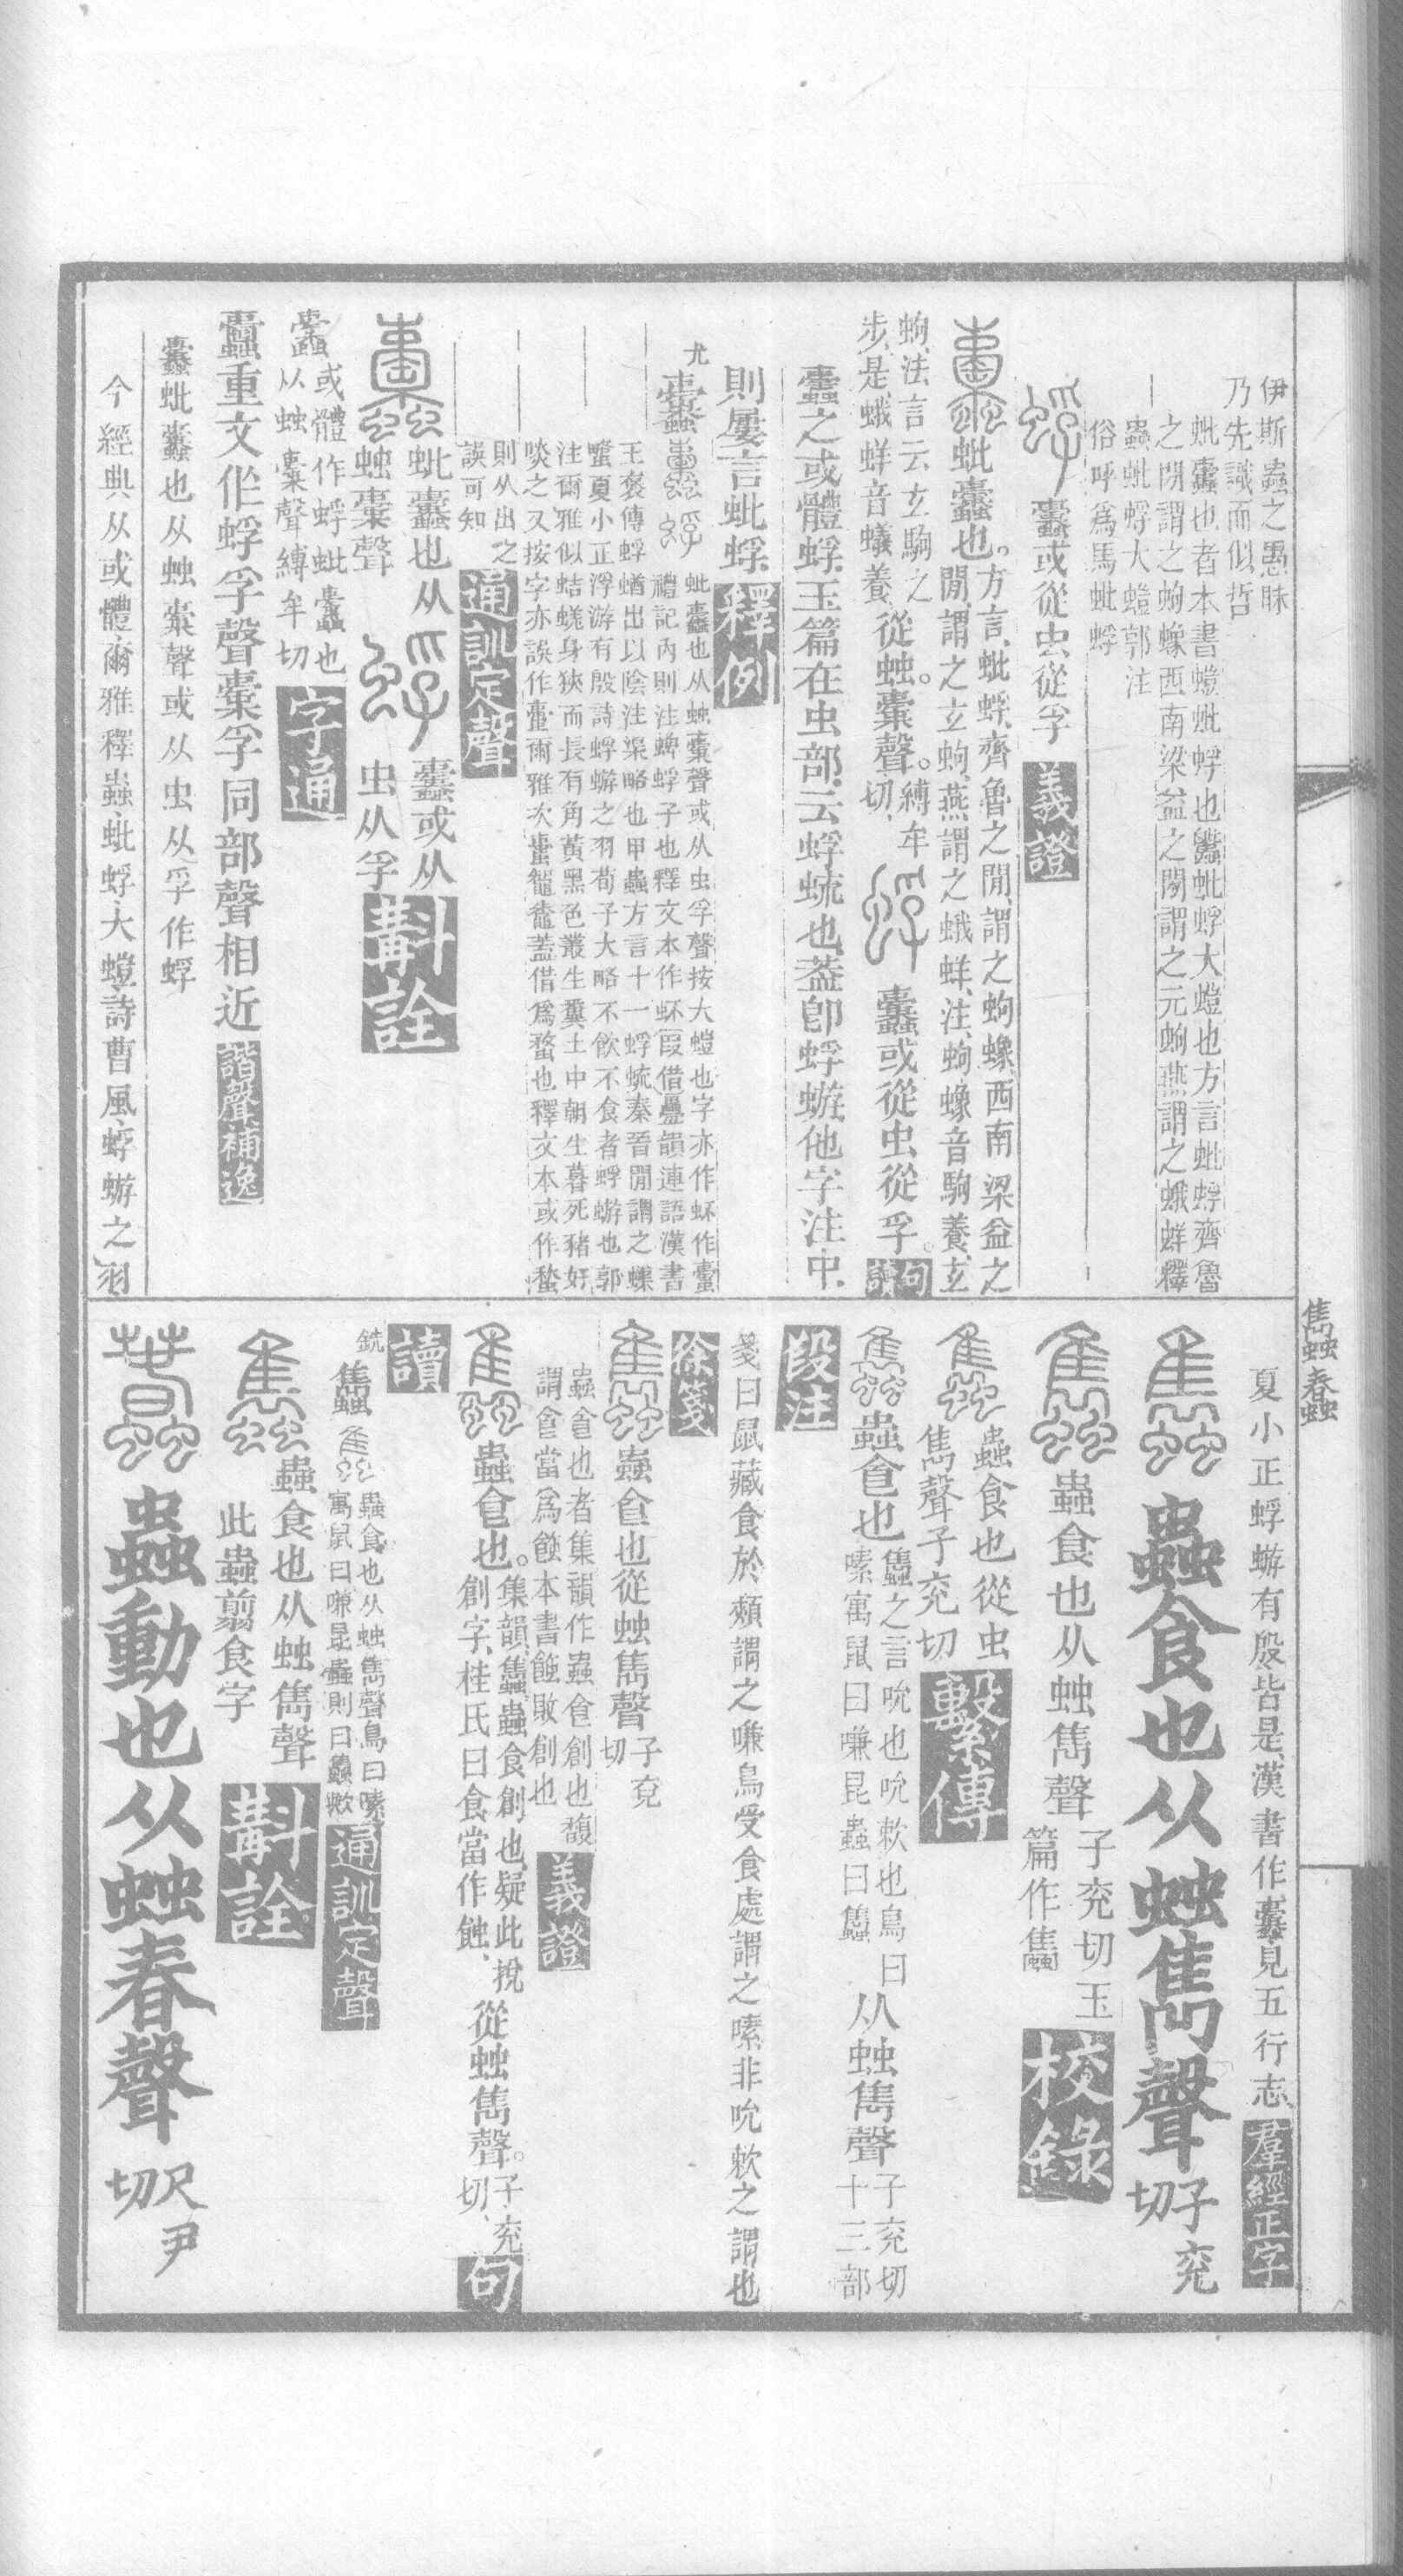 伊斯蟲之愚昧
乃先識而似哲
蚍蠹也者本書螘蚍蜉也蠶蚍蜉大螘也方言蚍蜉齊魯
之閒謂之蚼蟓西南梁益之閒謂之元蚼燕謂之蛾蛘釋
蟲蚍蜉大螘郭注
俗呼爲馬蚍蜉
或從虫從孚 義證
蚍 也。方言、蚍蜉、齊魯之閒、謂之蚼蟓、西南梁益之
閒、謂之玄蚼、燕謂之蛾蛘、注、蚼蟓音駒養、玄
蚼、法言云玄駒之
步、是、蛾蛘音蟻養、從䖵橐聲。縛牟切、
或從虫從孚。句讀
之或體蜉、玉篇在虫部、云蜉蜣也、葢卽蜉蝣、他字注中、
則屢言蚍蜉、釋例
尤
蚍 也从䖵橐聲或从虫孚聲按大螘也字亦作蚥作
禮記內則注蜱蜉子也釋文本作蚥叚借疊韻連語漢書
王褒傳蜉蝤出以陰注渠略也甲蟲方言十一蜉蜣秦晉閒謂之蟝
夏小正浮游有殷詩蜉蝣之羽荀子大略不飮不食者蜉蝣也郭
注爾雅似蛣蜣身狹而長有角黃黑色叢生糞土中朝生暮死豬好
啖之又按字亦誤作 爾雅次 蓋借爲蝥也釋文本或作蝥
則从出之
誤可知 通訓定聲
蚍 也从
䖵橐聲
或从
虫从孚 斠詮
或體作蜉蚍 也
从䖵橐聲縛牟切 字通
重文作蜉孚聲橐孚同部聲相近 諧聲補逸
蚍 也从䖵橐聲或从虫从孚作蜉
今經典从或體、爾雅釋蟲、蚍蜉、大螘、詩曹風、蜉蝣之羽
夏小正蜉蝣有殷、皆是、漢書作 、見五行志、羣經正字
蟲食也从䖵雋聲 子兖切
蟲食也从䖵雋聲 子兖切玉
篇作 校錄
蟲食也從虫
雋聲子兖切 繫傳
蟲食也 之言吮也吮欶也鳥曰
嗉寓鼠曰嗛昆蟲曰 从䖵雋聲 子兖切
十三部
段注
箋曰鼠藏食於頰謂之嗛鳥受食處謂之嗉非吮欶之謂也
徐箋
蟲食也從䖵雋聲 子兖切
蟲食也者集韻作蟲食創也馥
謂食當爲餯本書餯敗創也 義證
蟲食也。集韻、 、蟲食創也、疑此挩
創字、桂氏曰、食當作蝕、從䖵雋聲。子兖切、句
讀
銑
蟲食也从䖵雋聲鳥曰嗉
寓鼠曰嗛昆蟲則曰 欶 通訓定聲
蟲食也从䖵雋聲
此蟲翦食字 斠詮
蟲動也从䖵春聲 尺尹切